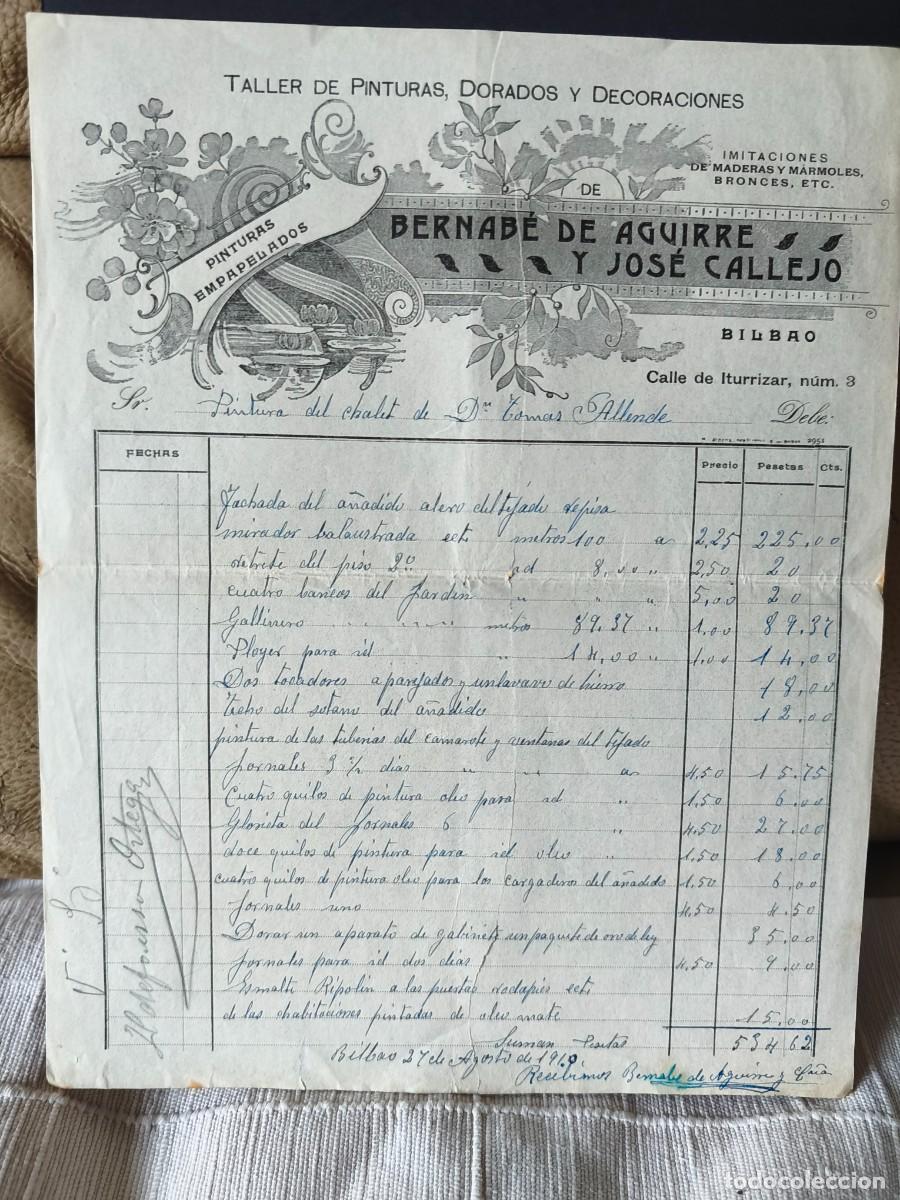 TALLER DE PINTURAS, DORADOS Y DECORACIONES
IMITACIONES
DE MADERAS Y MÁRMOLES,
BRONCES, ETC.
DE
PINTURAS
EMPAPELADOS
BERNABÉ DE AGUIRRE
Y JOSÉ CALLEJO
BILBAO
Calle de Iturrizar, núm. 3
Sr. Pintura del chalet de Dn Tomas Allende Debe:
2951
FECHAS Precio Pesetas Cts.
Fachada del añadido alero del tejado repisa
mirador balaustrada ect metros 100 a 2,25 225,00
retrete del piso 2º id 8,00 " 2,50 20
cuatro bancos del Jardin " " " 5,00 20
Gallinero metros 89.37 " 1,00 89.37
Ployer para id " 14,00 " 1,00 14,00
Dos tocadores aparejados y un lavavo de hierro 18,00
techo del sotano del añadido 12.00
pintura de las tuberias del camarote y ventanas del tejado
Jornales 3 ½ dias " " a 4,50 15.75
Cuatro quilos de pintura oleo para id " 1,50 6.00
Glorieta del Jornales 6 " 4,50 27.00
doce quilos de pintura para id oleo " 1,50 18.00
cuatro quilos de pintura oleo para los cargaderos del añadido 1,50 6.00
Jornales uno 4,50 4.50
Dorar un aparato de gabinete un paquete de oro de ley 35.00
Jornales para id dos dias 4,50 9.00
Esmalte Ripolin a las puertas rodapies ect.
de las chabitaciones pintadas de oleo mate 15,00
Suman Pesetas 534 62
Bilbao 27 de Agosto de 1910
Recibimos Bernabe de Aguirre y Cñia
Ildefonso Ortega
todocoleccion.net